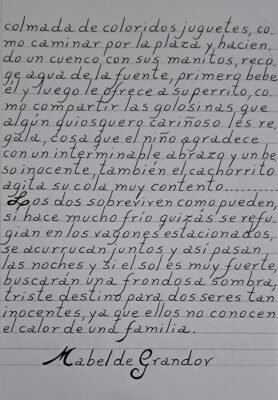 colmada de coloridos juguetes, co_
mo caminar por la plaza y hacien_
do un cuenco, con sus manitos, reco_
ge agua de la fuente, primero bebe
él y luego le ofrece a su perrito, co_
mo compartir las golosinas que
algún quiosquero cariñoso les re_
gala, cosa que el niño agradece
con un interminable abrazo y un be_
so inocente, también el cachorrito
agita su cola, muy contento..........
Los dos sobreviven como pueden,
si hace mucho frío quizás se refu_
gian en los vagones estacionados,
se acurrucan juntos y así pasan
las noches y si el sol es muy fuerte,
buscarán una frondosa sombra,
triste destino para dos seres tan
inocentes, ya que ellos no conocen
el calor de una familia.
Mabel de Grandov